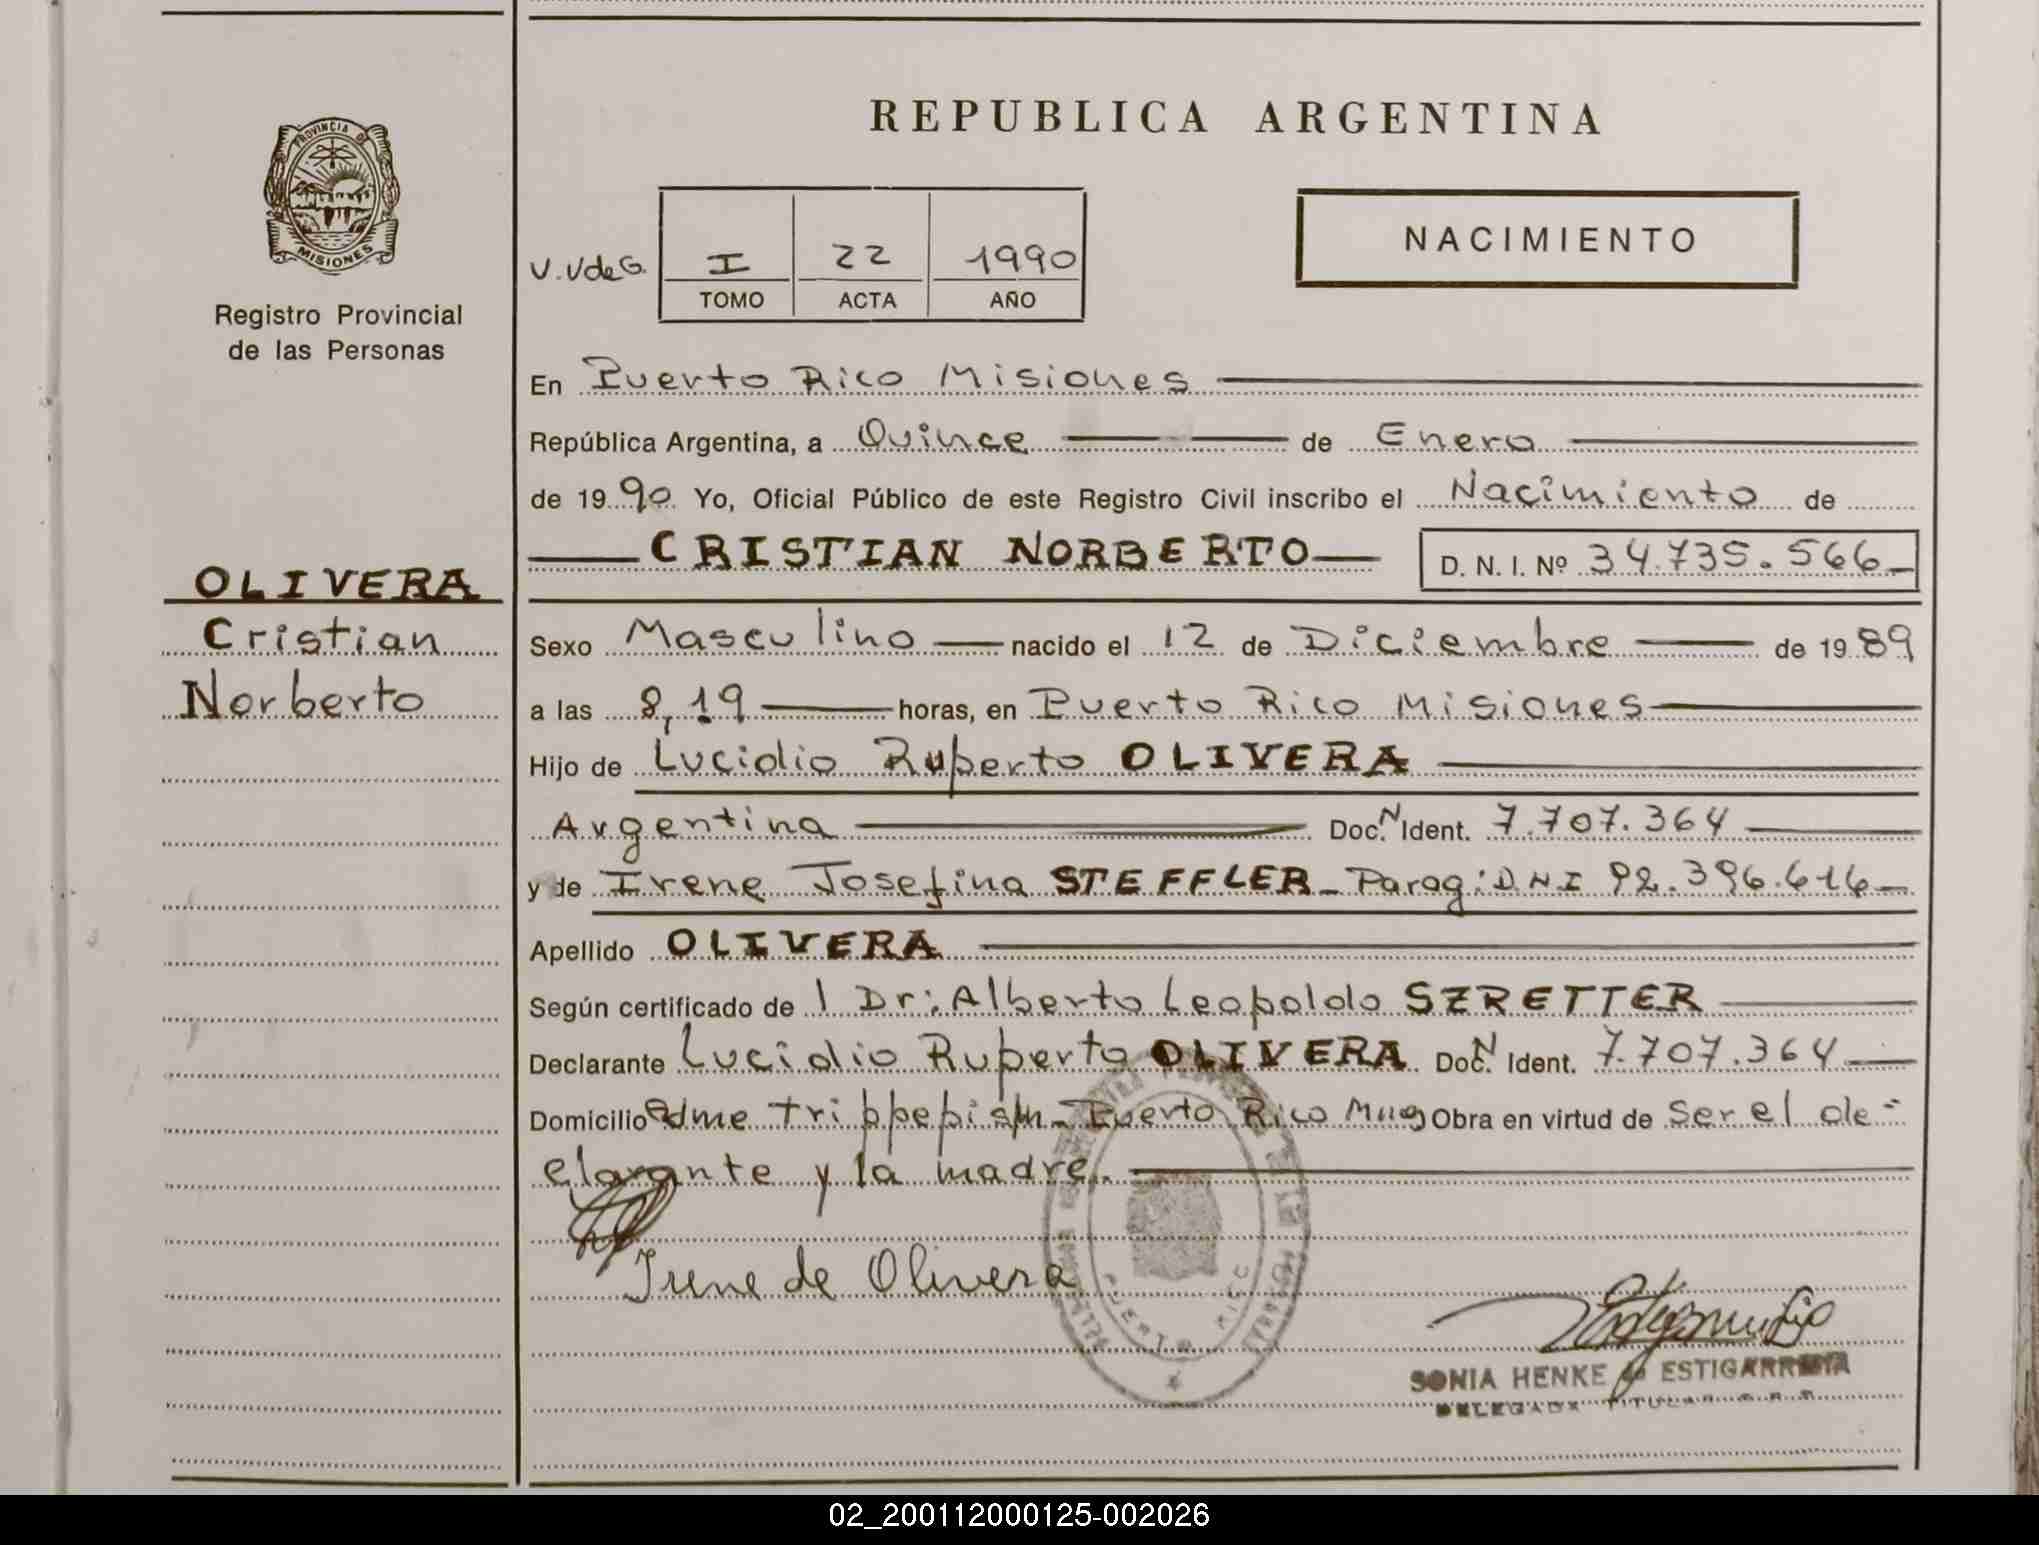 REPUBLICA ARGENTINA
PROVINCIA DE
MISIONES
Registro Provincial
de las Personas
V.VdeG.
I 22 1990
TOMO ACTA AÑO
NACIMIENTO
En Puerto Rico Misiones
República Argentina, a Quince de Enero
de 1990 Yo, Oficial Público de este Registro Civil inscribo el Nacimiento de
CRISTIAN NORBERTO D. N. I. Nº 34.735.566
OLIVERA
Cristian
Norberto
Sexo Masculino nacido el 12 de Diciembre de 1989
a las 8,19 horas, en Puerto Rico Misiones
Hijo de Lucidio Ruperto OLIVERA
Argentina Doc. N Ident. 7.707.364
y de Irene Josefina STEFFLER Parag: DNI 92.396.616
Apellido OLIVERA
Según certificado de l Dr: Alberto Leopoldo SZRETTER
Declarante Lucidio Ruperto OLIVERA Doc. N Ident. 7.707.364
Domicilio Puerto Rico Obra en virtud de ser el de=
clarante y la madre.
Irene de Olivera
PUERTO RICO
SONIA HENKE de ESTIGARRIBIA
DELEGADA TITULAR
02_200112000125-002026